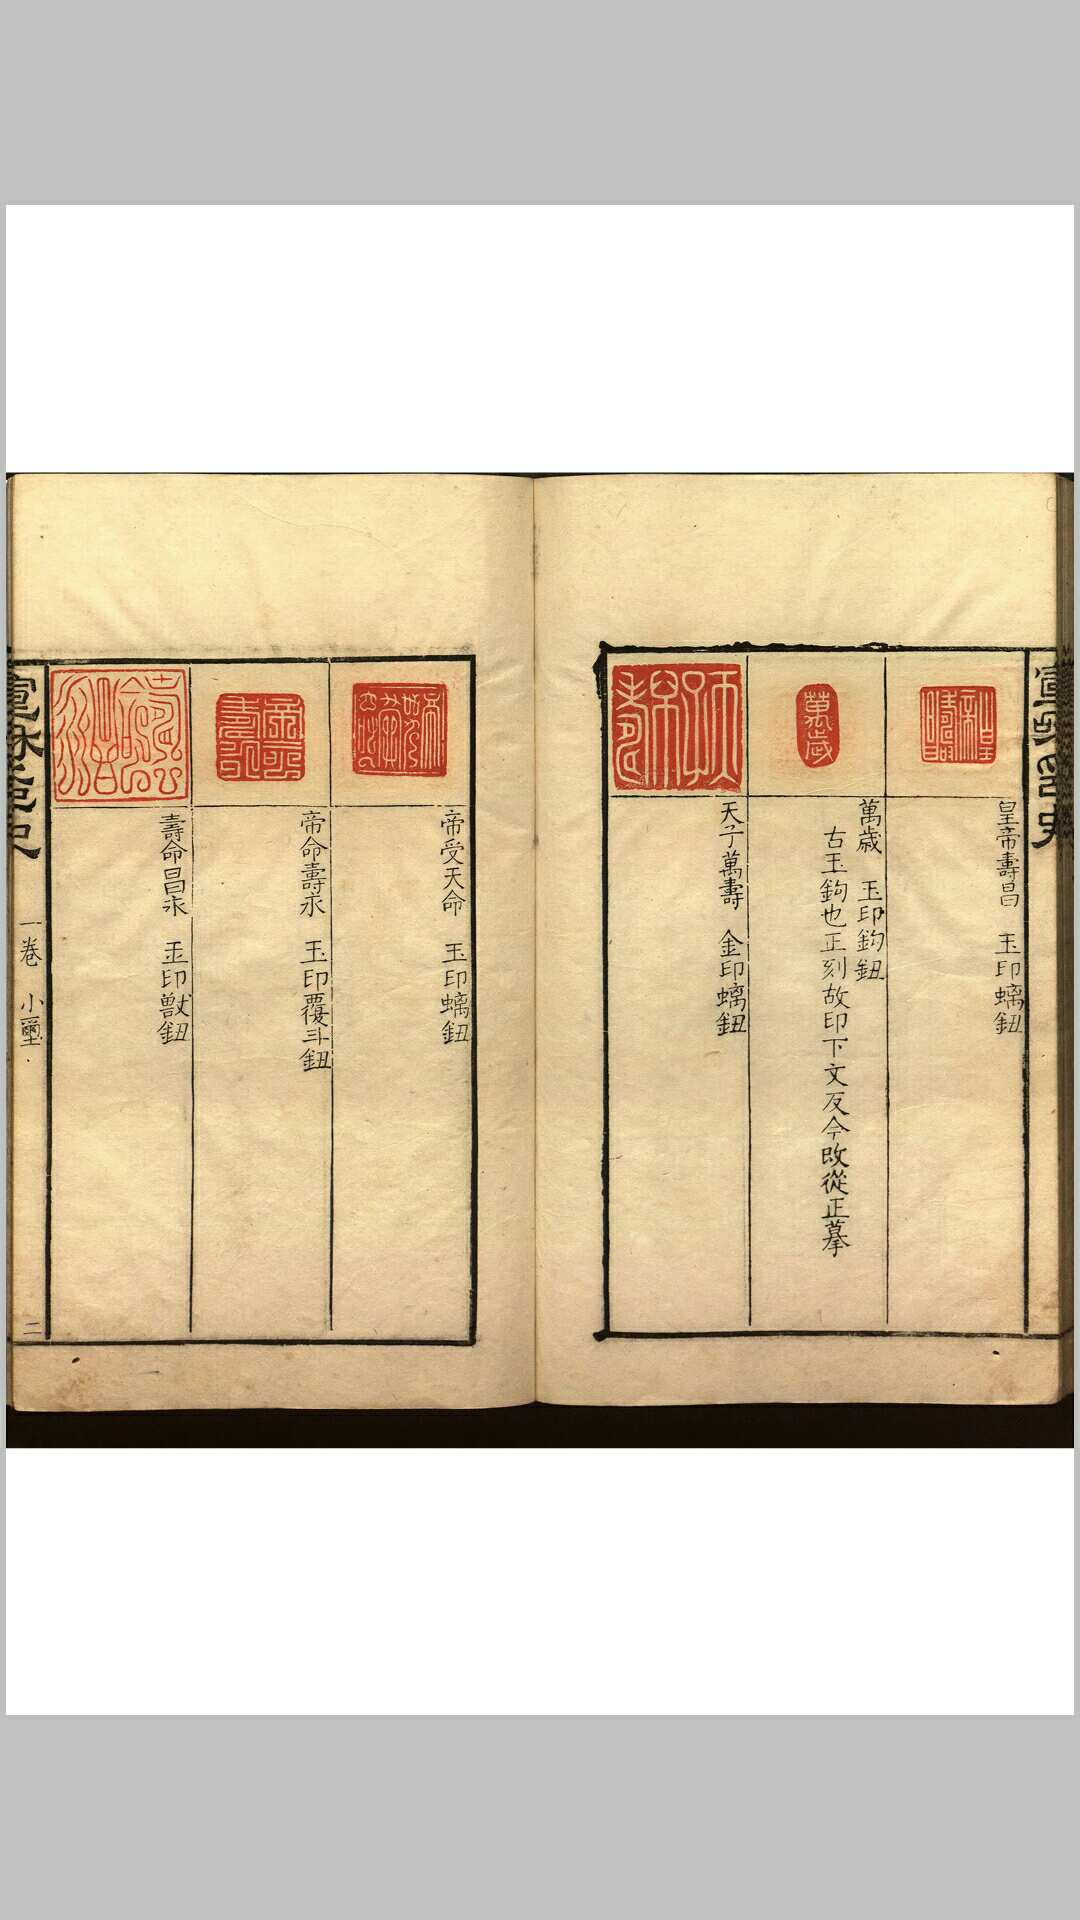 皇帝壽昌　玉印螭鈕
萬歲　玉印鈎鈕
古玉鈎也正刻故印下文反今改從正摹
天子萬壽　金印螭鈕
帝受天命　玉印螭鈕
帝命壽永　玉印覆斗鈕
壽命昌永　玉印獸鈕
一卷　小璽
二
皇帝壽昌
萬歲